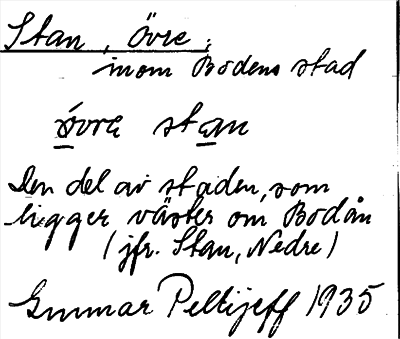 Stan, Övre,
inom Bodens stad
øvra stan
Den del av staden, som
ligger väster om Bodån
(jfr. Stan, Nedre)
Gunnar Pellijeff 1935